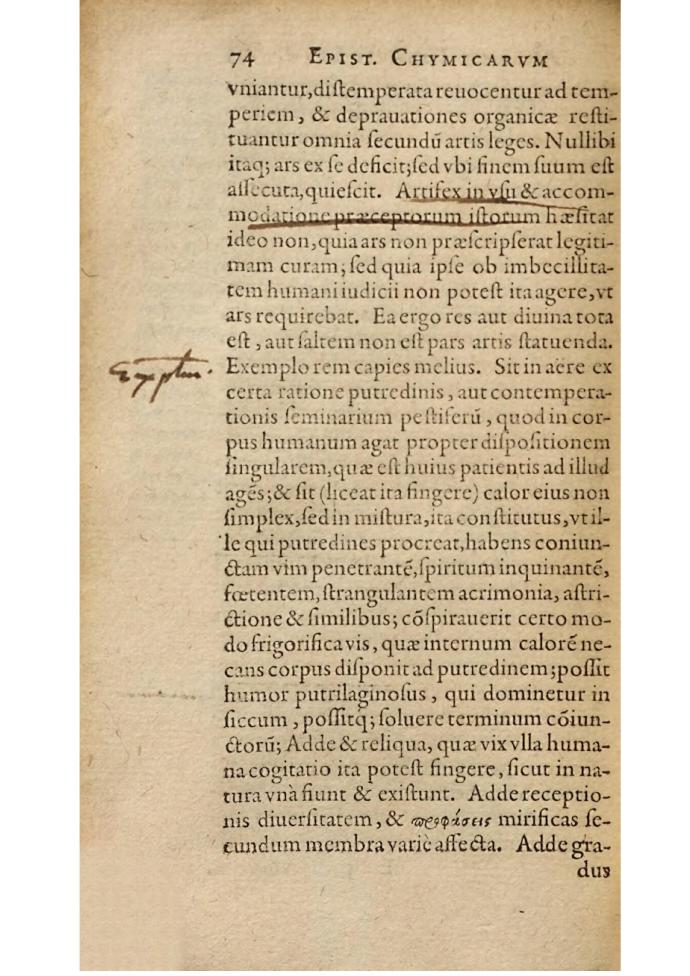 74 EPIST. CHYMICARVM
vniantur,diſtemperata reuocentur ad tem-
periem, & deprauationes organicæ reſti-
tuantur omnia ſecundũ artis leges. Nullibi
itaq; ars ex ſe deficit;ſed vbi finem ſuum eſt
aſſecuta,quieſcit. Artifex in vſu & accom-
modatione præceptorum iſtorum hæſitat
ideo non,quia ars non præſcripſerat legiti-
mam curam; ſed quia ipſe ob imbecillita-
tem humani iudicii non poteſt ita agere,vt
ars requirebat. Ea ergo res aut diuina tota
eſt, aut ſaltem non eſt pars artis ſtatuenda.
Exemplo rem capies melius. Sit in aere ex
certa ratione putredinis, aut contempera-
tionis ſeminarium peſtiferũ, quod in cor-
pus humanum agat propter diſpoſitionem
ſingularem,quæ eſt huius patientis ad illud
agẽs;& ſit (liceat ita fingere) calor eius non
ſimplex,ſed in miſtura,ita conſtitutus,vt il-
le qui putredines procreat,habens coniun-
ctam vim penetrantẽ,ſpiritum inquinantẽ,
fœtentem,ſtrangulantem acrimonia, aſtri-
ctione & ſimilibus; cõſpirauerit certo mo-
do frigorifica vis, quæ internum calorẽ ne-
cans corpus diſponit ad putredinem;poſſit
humor putrilaginoſus, qui dominetur in
ſiccum, poſſitq; ſoluere terminum cõiun-
ctorũ; Adde & reliqua, quæ vix vlla huma-
na cogitatio ita poteſt fingere, ſicut in na-
tura vnà fiunt & exiſtunt. Adde receptio-
nis diuerſitatem, & προφάσεις mirificas ſe-
cundum membra variè affecta. Adde gra-
dus